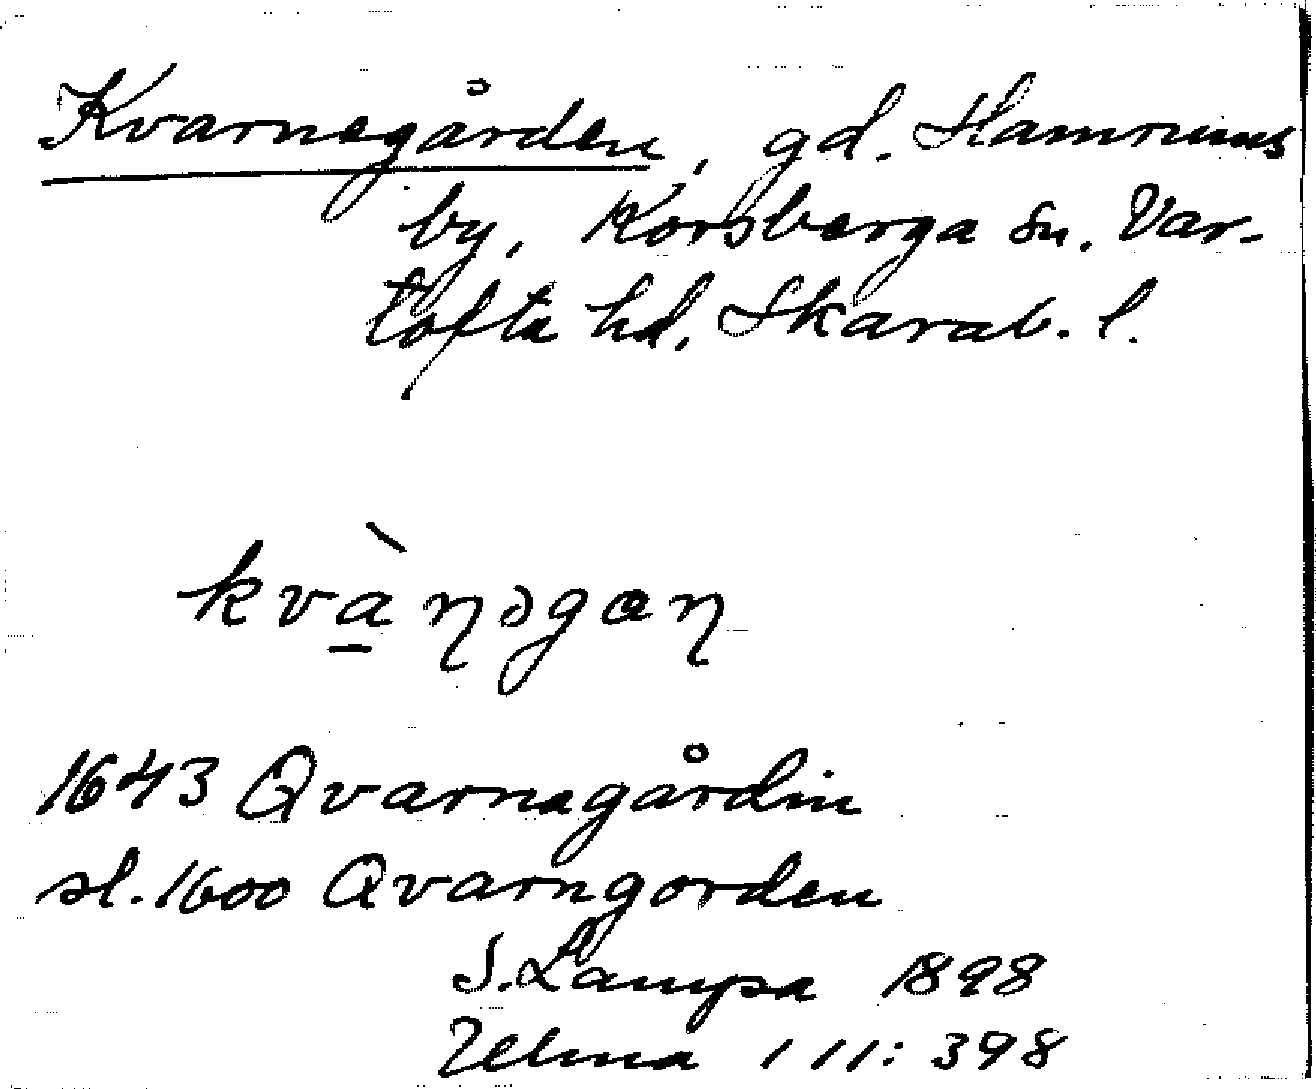 Kvarnegården, gd. Hamrums
by, Korsberga sn. Var-
tofta hd, Skarab. l.
kvàṇəgaṇ
1643 Qvarnegårdin
sl. 1600 Qvarngorden
S. Lampa 1898
Ulma 111: 398